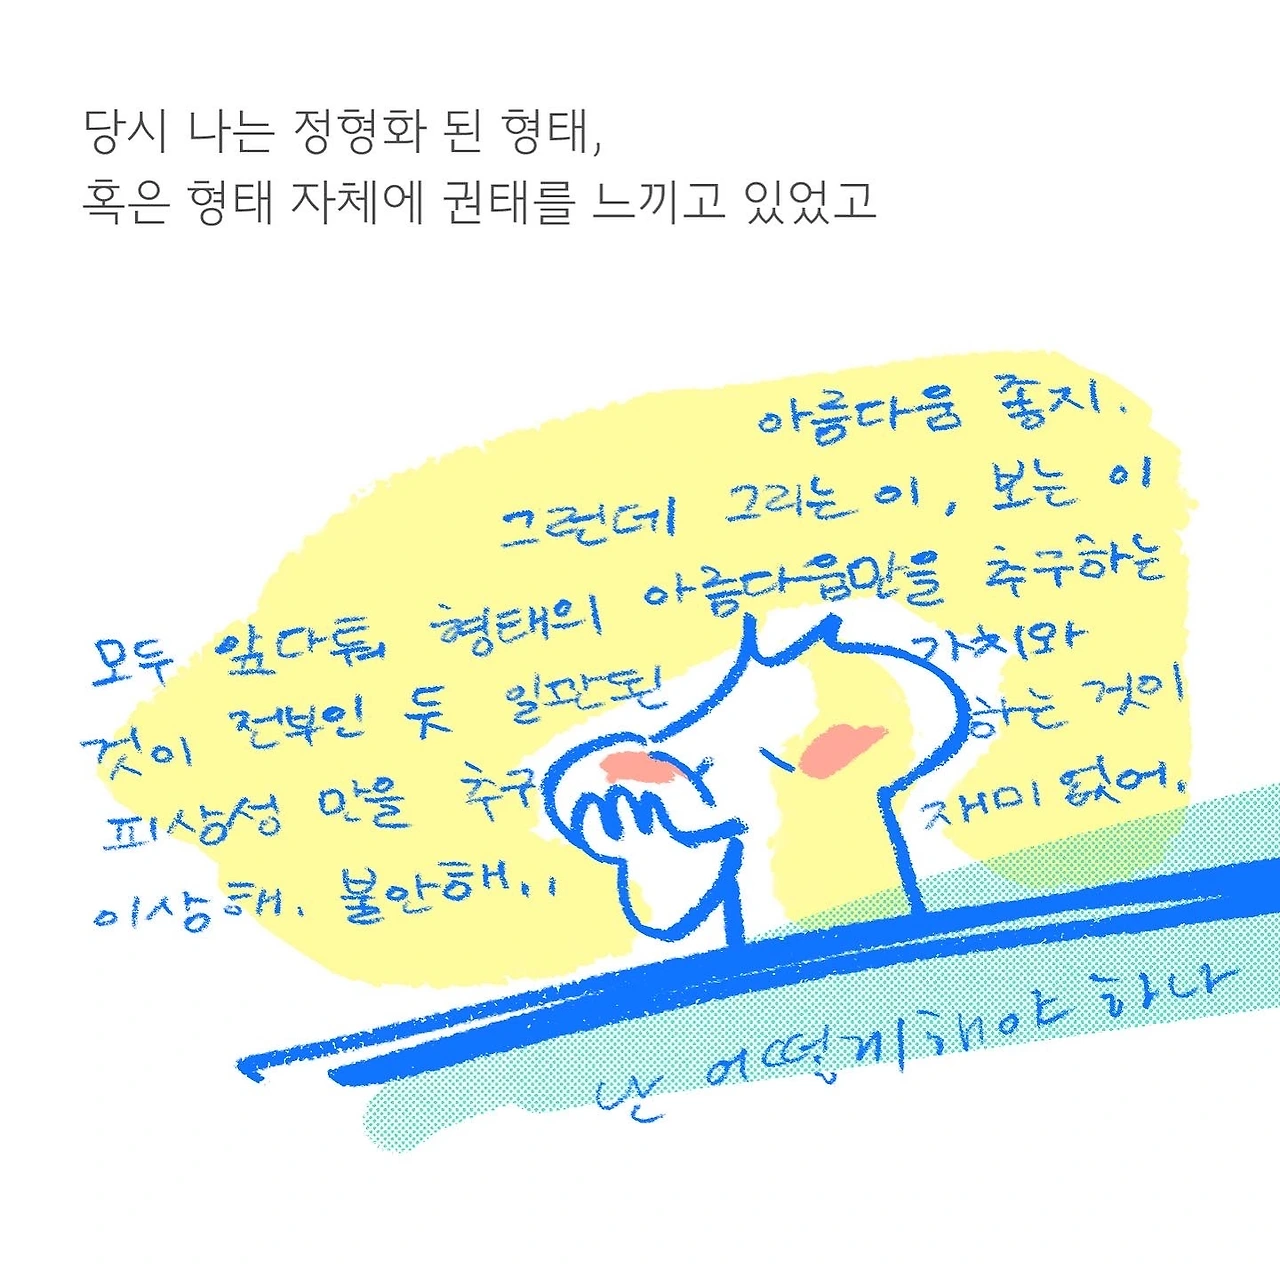 당시 나는 정형화 된 형태,
혹은 형태 자체에 권태를 느끼고 있었고
아름다움 좋지.
그런데 그리는 이, 보는 이
모두 앞다퉈 형태의 아름다움만을 추구하는
것이 전부인 듯 일관된 가치와
피상성 만을 추구 하는 것이
이상해. 불안해.. 재미 없어.
난 어떻게해야 하나